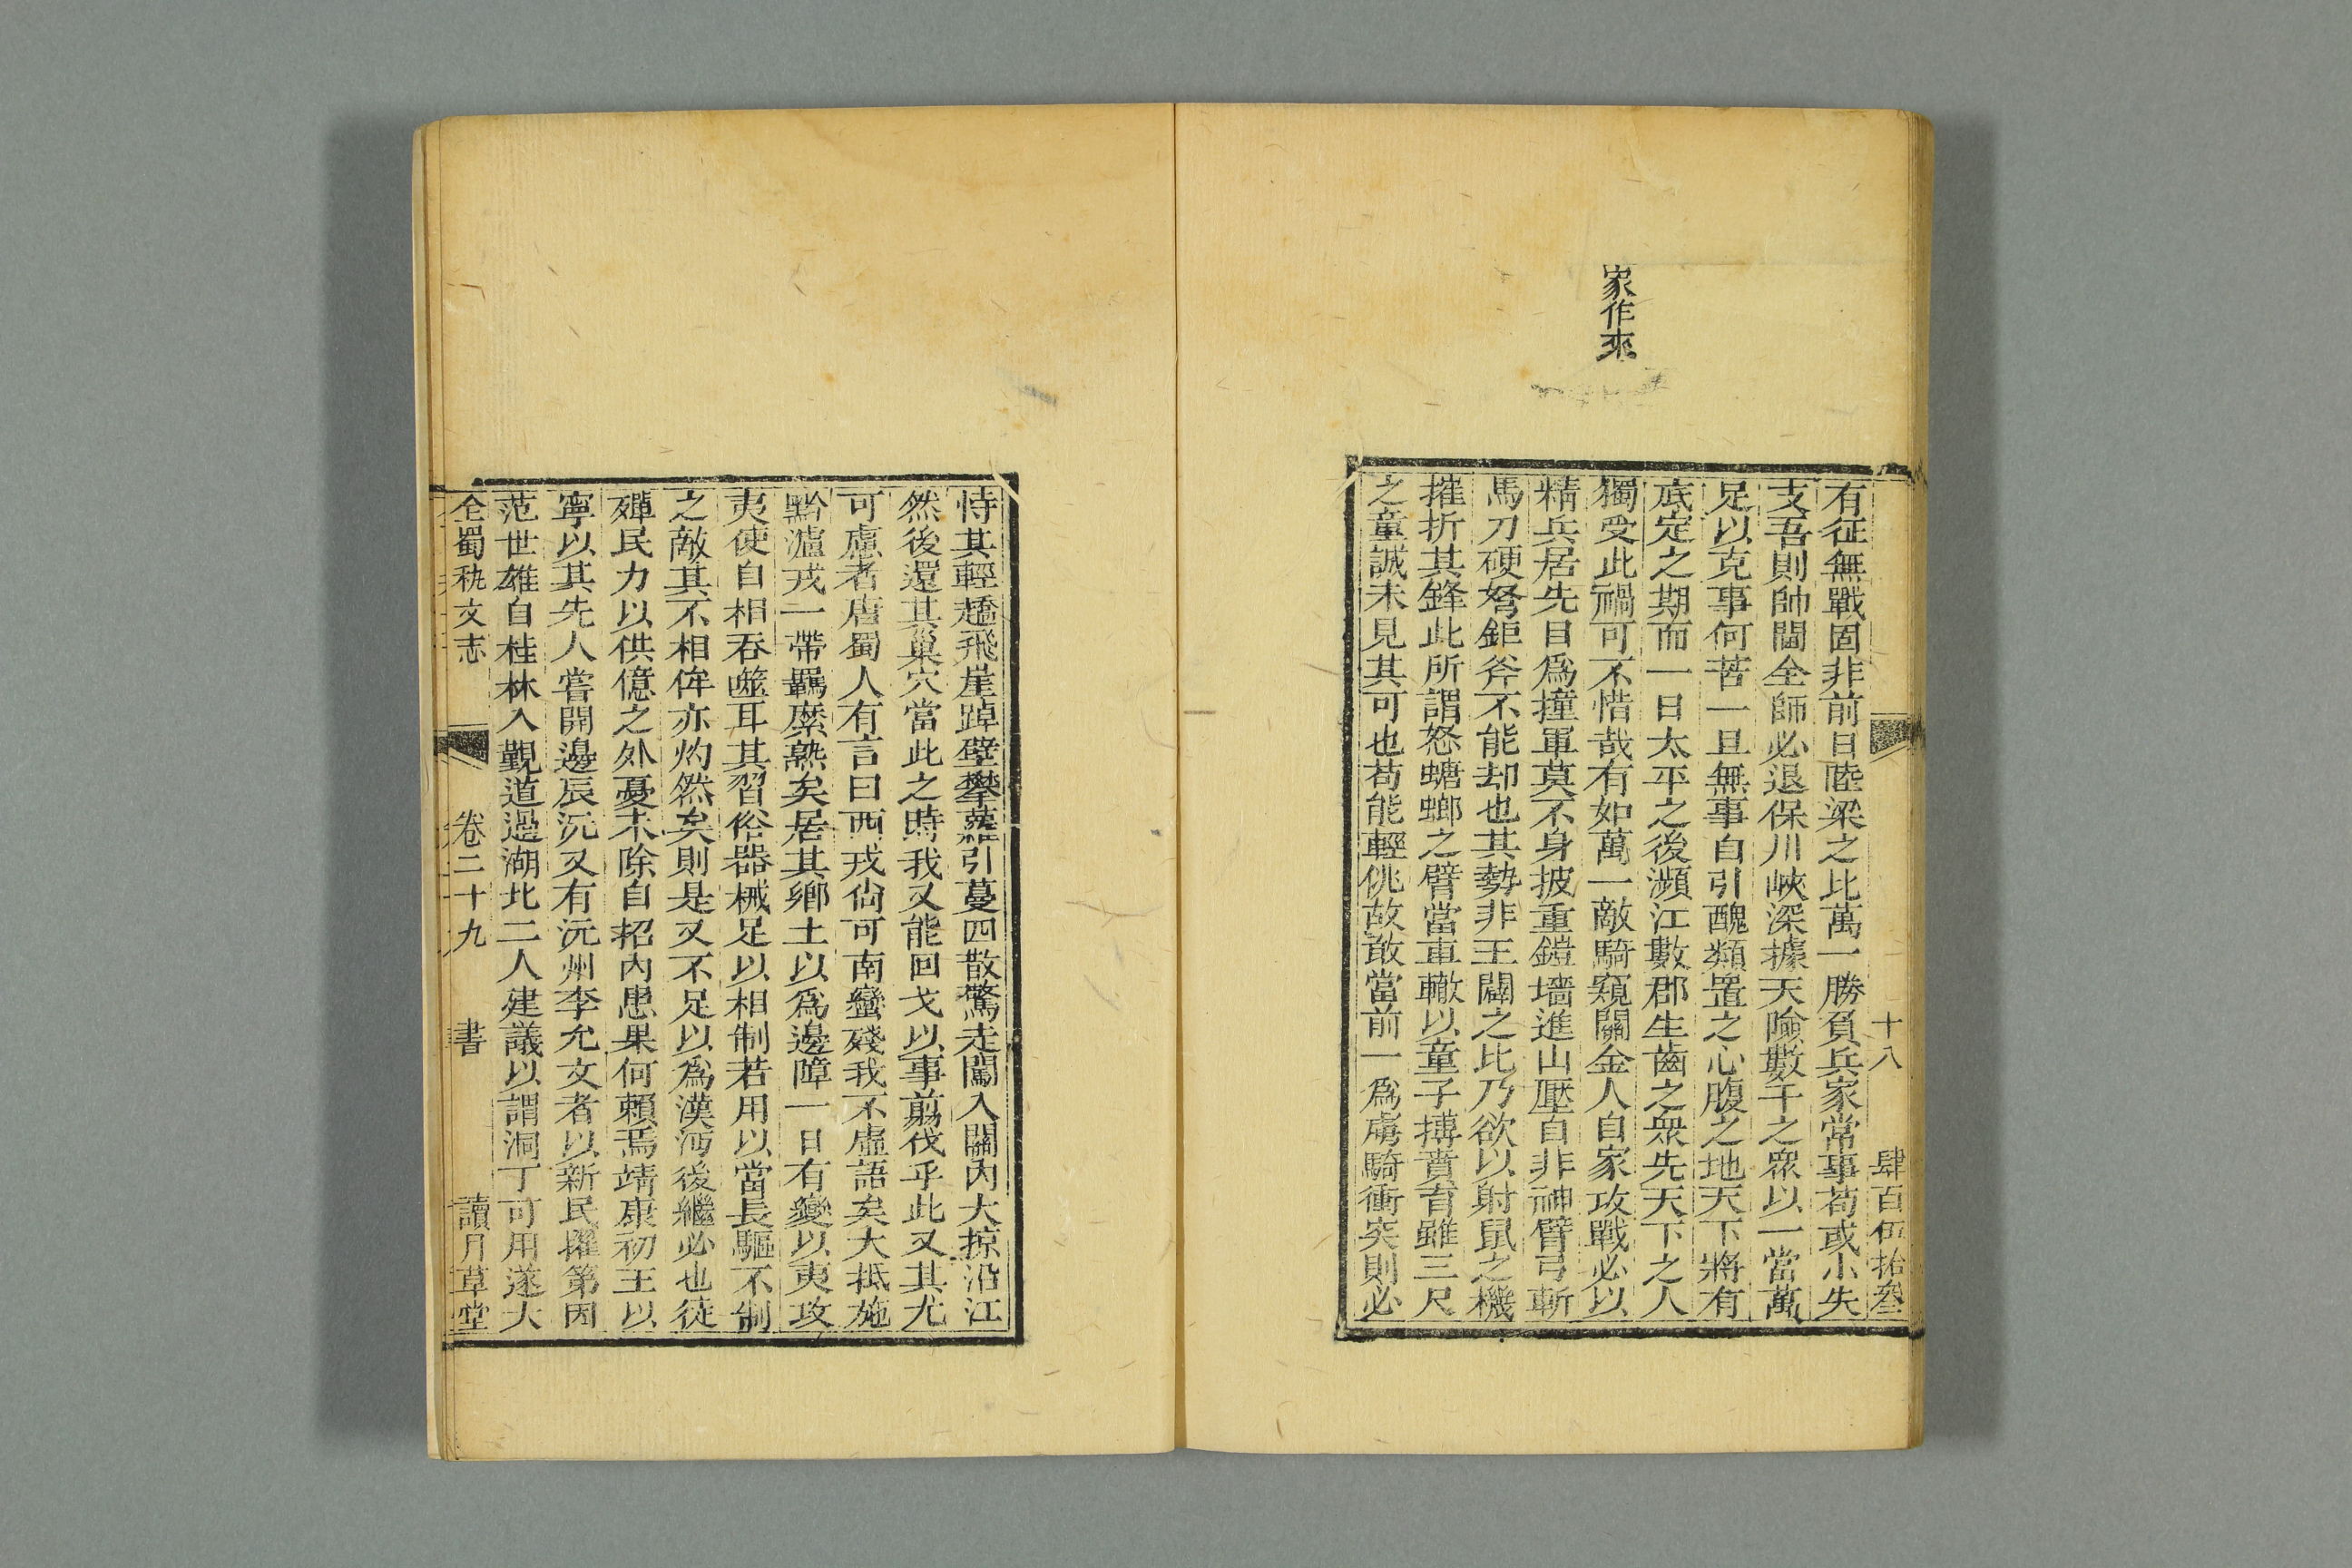 家作來
十八　肆百伍拾叁
有征無戰固非前日陸梁之比萬一勝負兵家常事苟或小失
支吾則帥閫全師必退保川峽深據天險數千之眾以一當萬
足以克事何苦一旦無事自引醜類置之心腹之地天下將有
底定之期而一日太平之後瀕江數郡生齒之眾先天下之人
獨受此禍可不惜哉有如萬一敵騎窺關金人自家攻戰必以
精兵居先目爲撞軍莫不身披重鎧墻進山壓自非神臂弓斬
馬刀硬弩鉅斧不能却也其勢非王闢之比乃欲以射鼠之機
摧折其鋒此所謂怒螗螂之臂當車轍以童子搏賁育雖三尺
之童誠未見其可也苟能輕佻故敢當前一爲虜騎衝突則必
恃其輕趫飛崖踔壁攀蘿引蔓四散驚走闖入關內大掠沿江
然後還其巢穴當此之時我又能回戈以事翦伐乎此又其尤
可慮者唐蜀人有言曰西戎尙可南蠻殘我不虛語矣大抵施
黔瀘戎一帶羈縻熟矣居其鄉土以爲邊障一日有變以夷攻
夷使自相吞噬耳其習俗器械足以相制若用以當長驅不制
之敵其不相侔亦灼然矣則是又不足以爲漢沔後繼必也徒
殫民力以供億之外憂未除自招內患果何賴焉靖康初王以
寧以其先人嘗開邊辰沅又有沅州李允文者以新民擢第因
范世雄自桂林入覲道過湖北二人建議以謂洞丁可用遂大
全蜀秇文志　卷二十九　書　讀月草堂